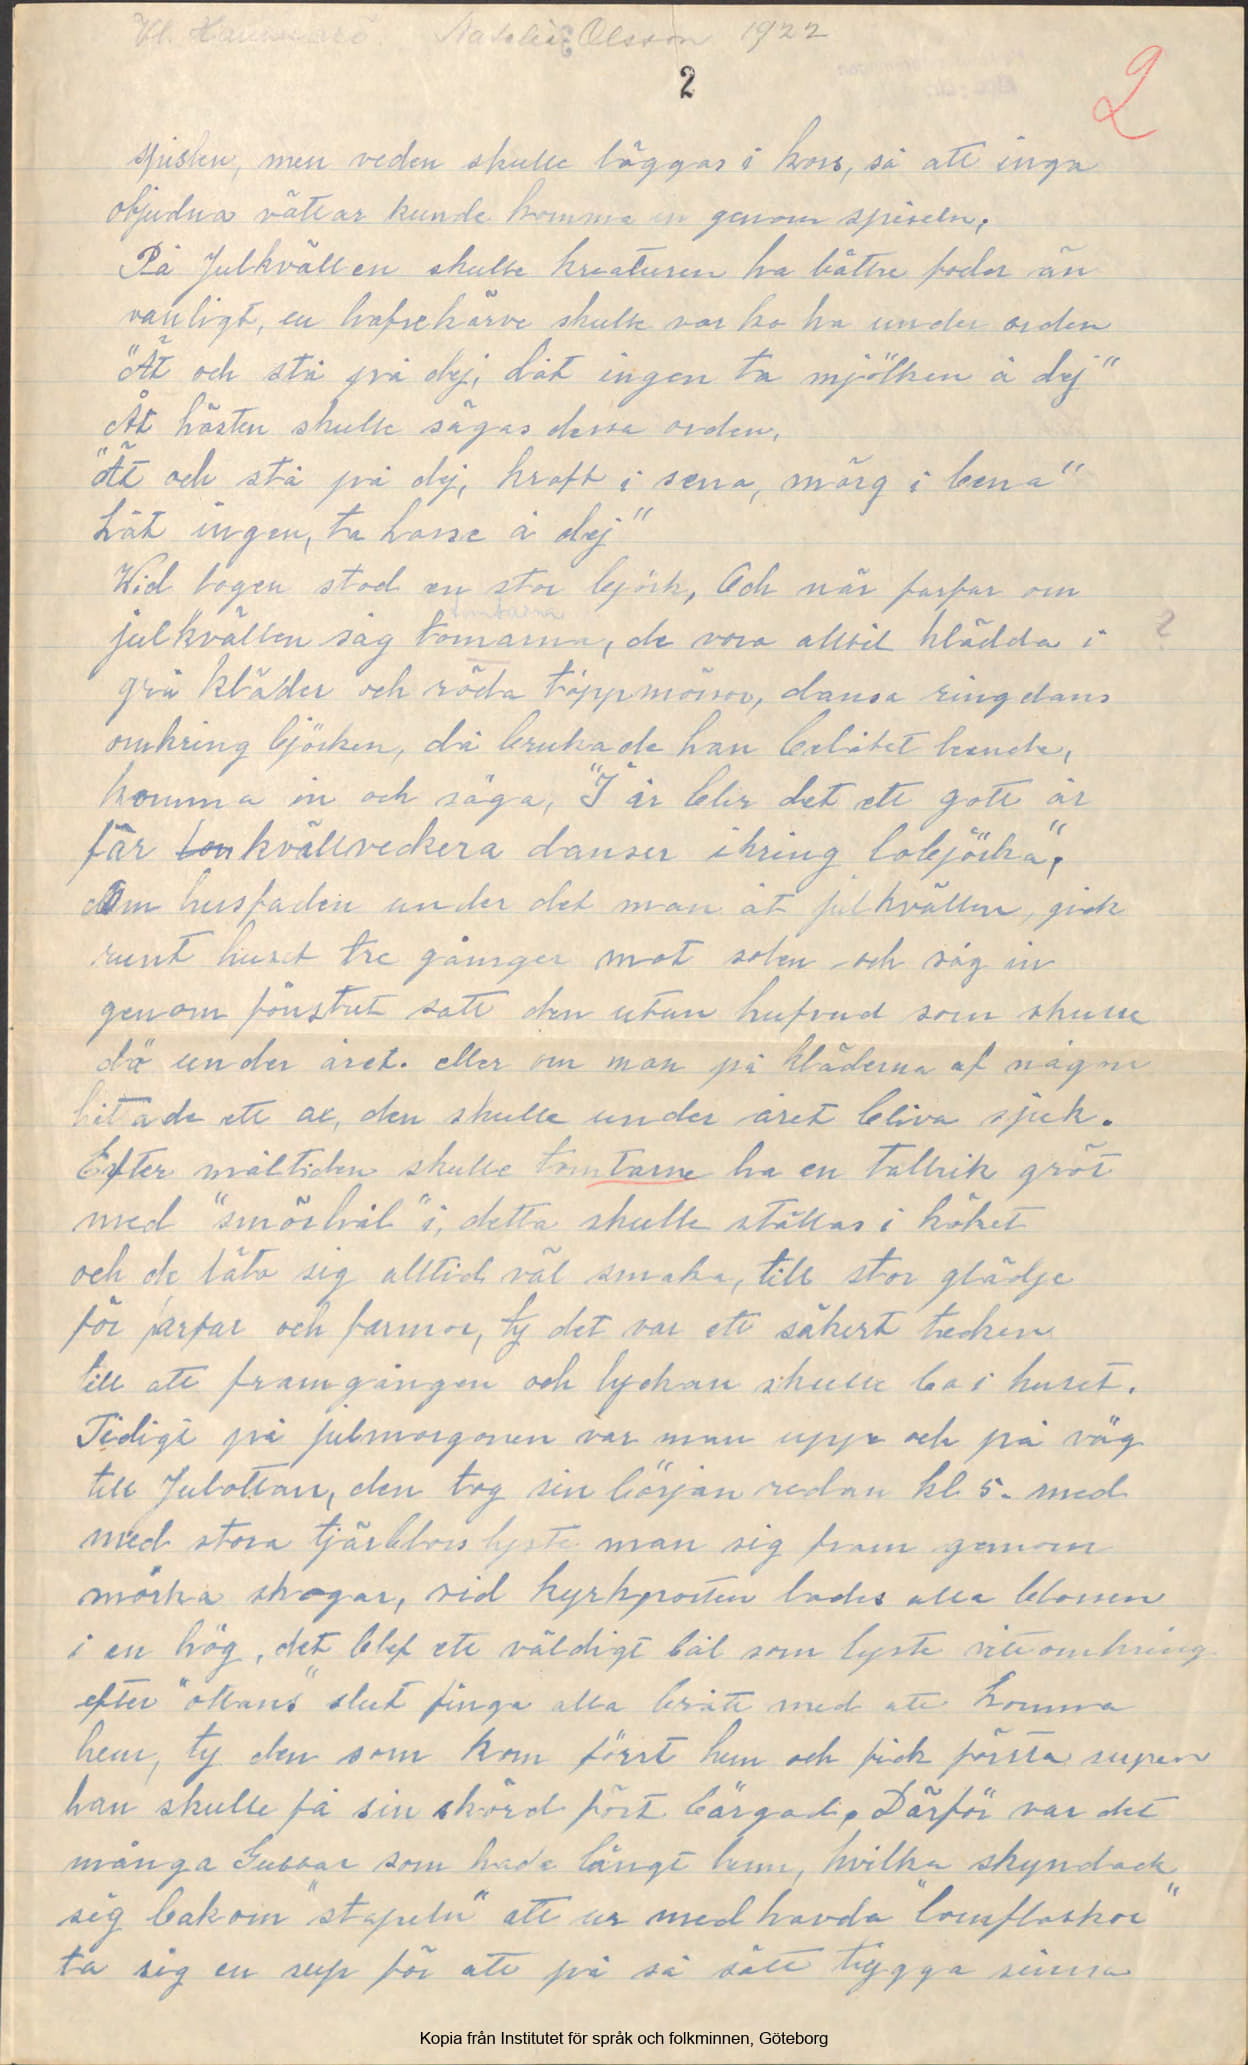 Vl. Hammarö. Natalia Olsson 1922
2
2
spislen, men veden skulle läggas i kors, så att inga
objudna vättar kunde komma in genom spiseln.
På Julkvällen skulle kreaturen ha bättre foder än
vanligt, en hafrekärve skulle var ko ha under orden
"Ät och stå på dej, låt ingen ta mjölken å dej"
Åt hästen skulle sägas dessa orden,
"Ät och stå på dej, kraft i sena, märg i bena"
Låt ingen, ta hasse å dej"
Wid logen stod en stor björk, Och när farfar om
tomtarna
julkvällen såg tomarna, de voro alltid klädda i
?
grå kläder och röda toppmössor, dansa ringdans
omkring björken, då brukade han belåtet leende,
komma in och säga, "I år blir det ett gott år
får kvällveckera danser ikring lobjörka",
Om husfadern under det man åt julkvällen, gick
runt huset tre gånger mot solen och såg in
genom fönstret satt den utan hufvud som skulle
dö under året. eller om man på kläderna af någon
hittade ett ax, den skulle under året bliva sjuk.
Efter måltiden skulle tomtarne ha en tallrik gröt
med "smörhål" i, detta skulle ställas i köket
och de läto sig alltid väl smaka, till stor glädje
för farfar och farmor, ty det var ett säkert tecken
till att framgången och lyckan skulle bo i huset.
Tidigt på julmorgonen var man uppe och på väg
till Julottan, den tog sin början redan kl. 5. med
med stora tjärbloss lyste man sig fram genom
mörka skogar, vid kyrkporten lades alla blossen
i en hög, det blef ett väldigt bål som lyste vitt omkring
efter "ottans" slut finga alla brått med att komma
hem, ty den som kom först hem och fick första supen
han skulle få sin skörd fört bärgad. Därför var det
många Gubbar som hade långt hem, hvilka skyndade
sig bakom "stapeln" att ur medhavda "lomflaskor"
ta sig en sup för att på så sätt trygga sinna
Kopia från Institutet för språk och folkminnen, Göteborg